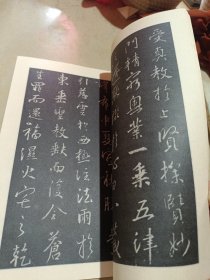 受真教於上賢探賾妙
門精窮奧業一乘五律
引慈雲於西極注法雨於
東垂聖教缺而復全蒼
生罪而還福濕火宅之乾